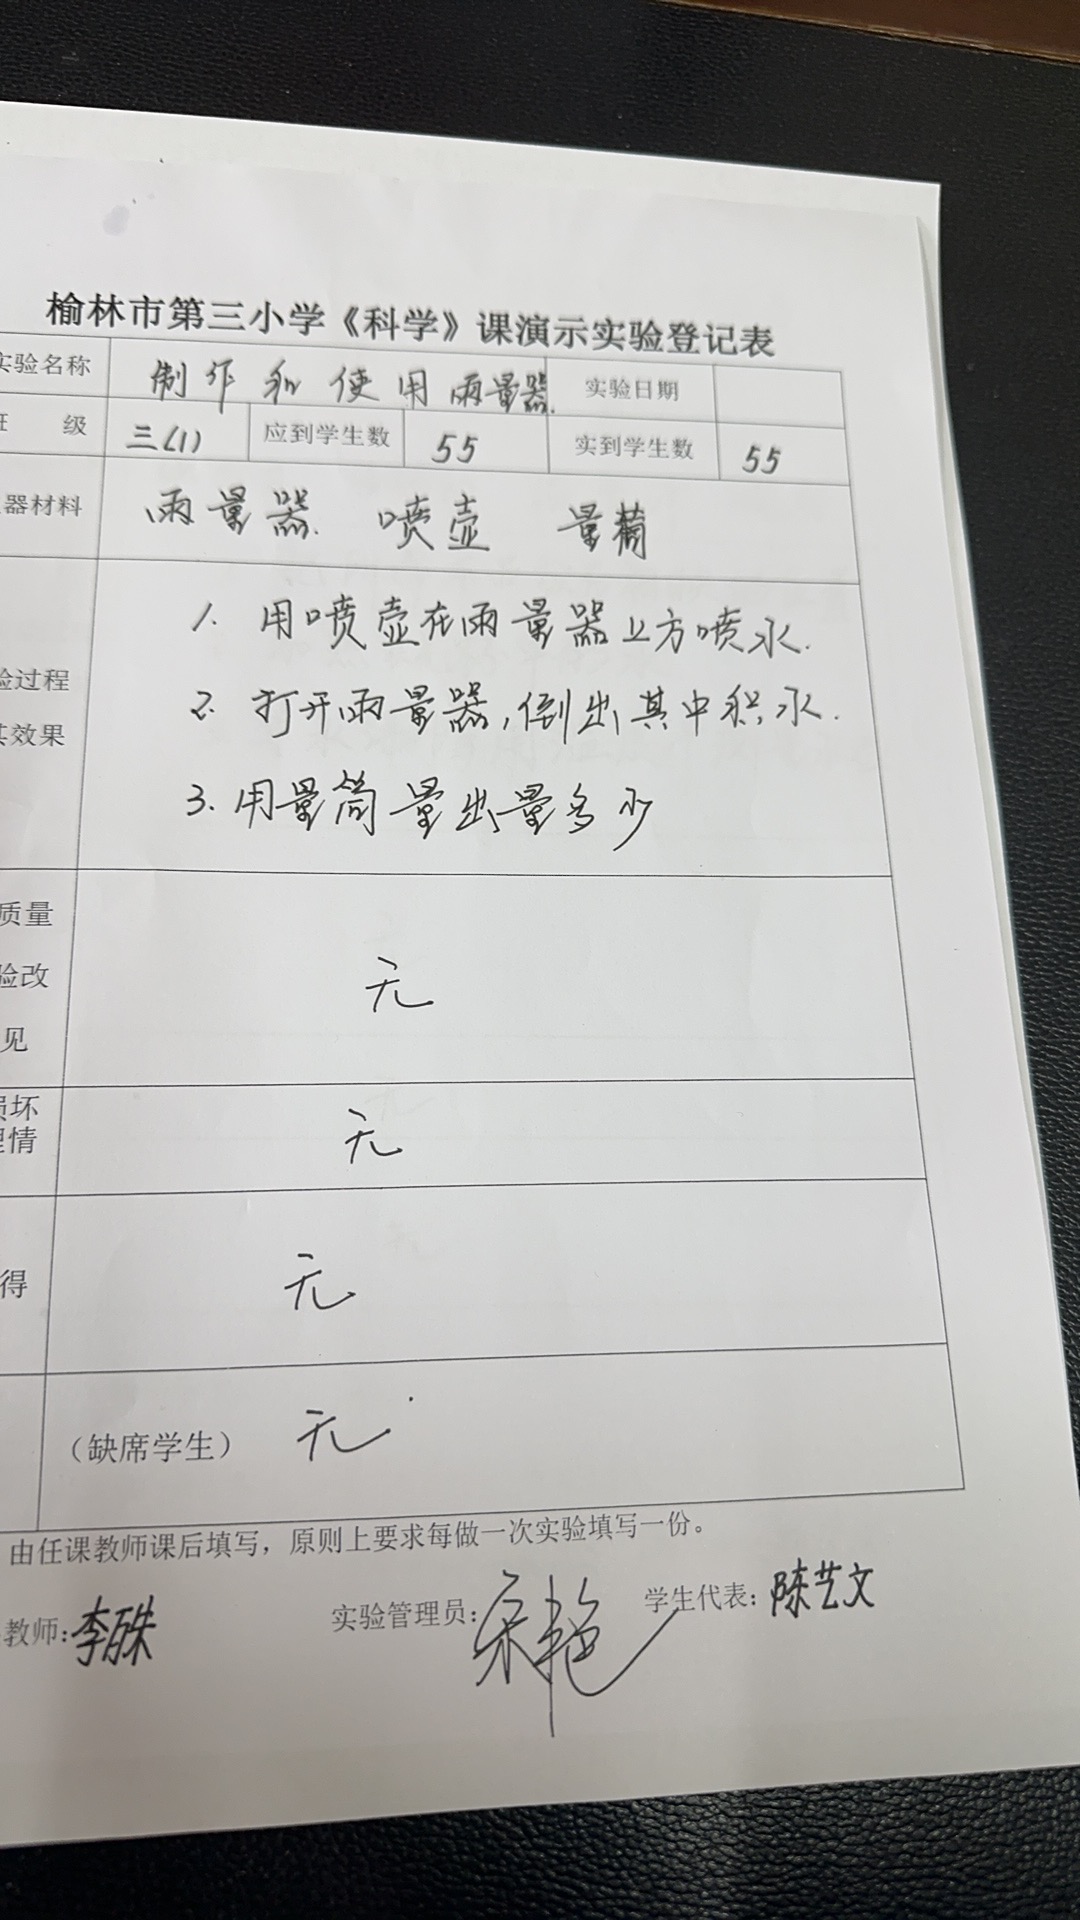 榆林市第三小学《科学》课演示实验登记表
实验名称 制作和使用雨量器. 实验日期
级 三(1) 应到学生数 55 实到学生数 55
器材料 雨量器. 喷壶 量筒
验过程
其效果
1. 用喷壶在雨量器上方喷水.
2. 打开雨量器,倒出其中积水.
3. 用量筒量出量多少
质量
验改
见
无
损坏
理情
无
得 无
(缺席学生) 无
由任课教师课后填写,原则上要求每做一次实验填写一份。
教师: 李 实验管理员: 学生代表: 陈艺文